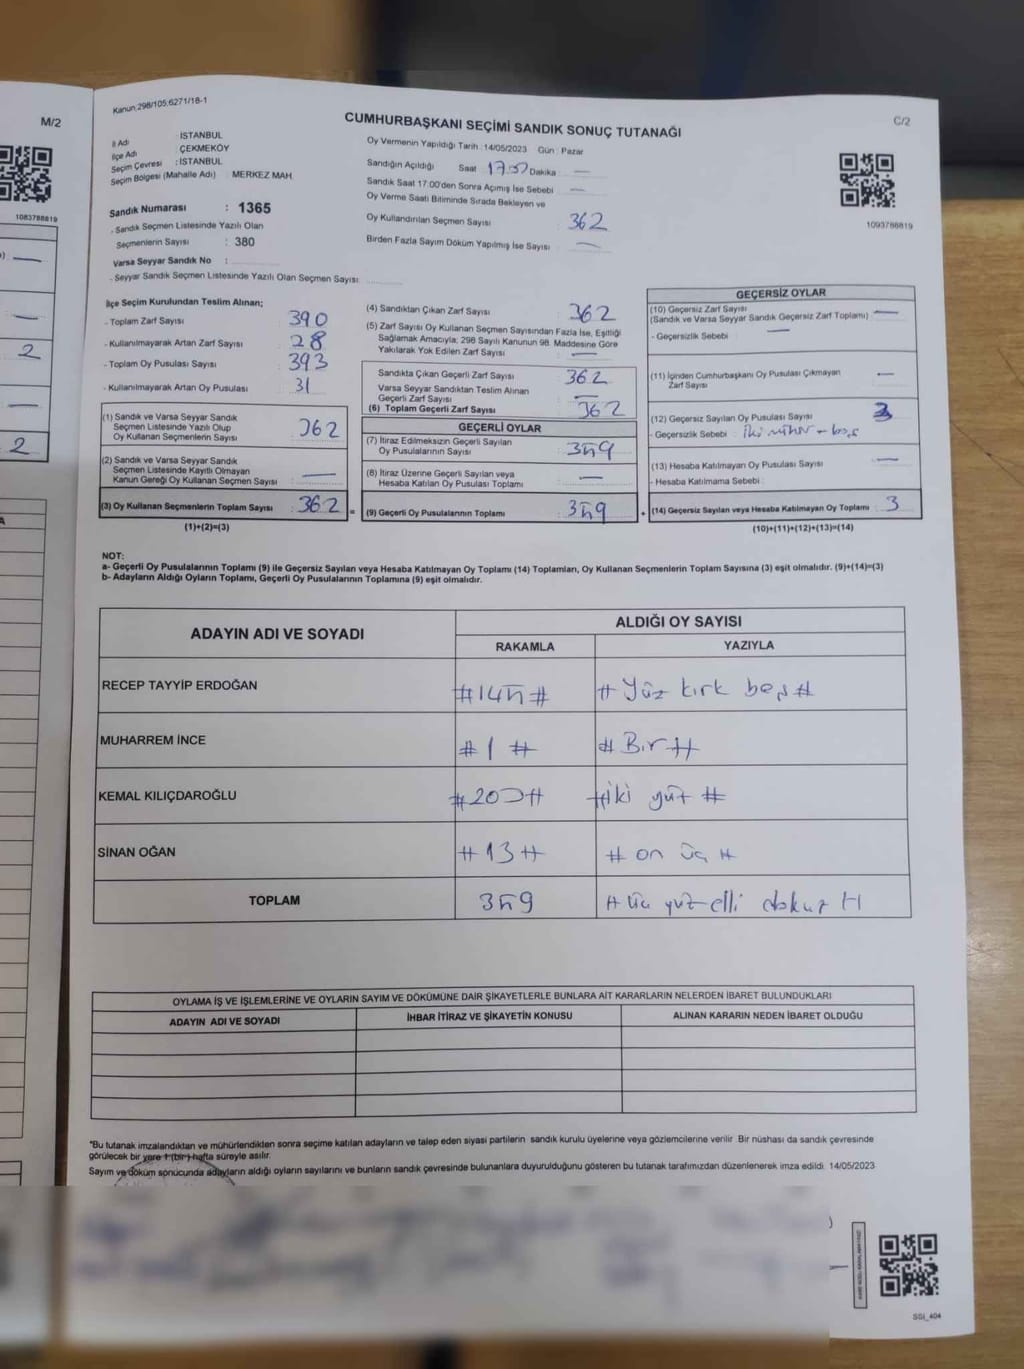 M/2
1083788819
2
2
A
Kanun:298/105;6271/18-1
C/2
CUMHURBAŞKANI SEÇİMİ SANDIK SONUÇ TUTANAĞI
İl Adı : İSTANBUL
İlçe Adı : ÇEKMEKÖY
Seçim Çevresi : İSTANBUL
Seçim Bölgesi (Mahalle Adı) : MERKEZ MAH.
Sandık Numarası : 1365
- Sandık Seçmen Listesinde Yazılı Olan
Seçmenlerin Sayısı : 380
Varsa Seyyar Sandık No :
- Seyyar Sandık Seçmen Listesinde Yazılı Olan Seçmen Sayısı:
Oy Vermenin Yapıldığı Tarih :14/05/2023 Gün : Pazar
Sandığın Açıldığı Saat Dakika —
Sandık Saat 17:00'den Sonra Açılmış İse Sebebi —
Oy Verme Saati Bitiminde Sırada Bekleyen ve
Oy Kullandırılan Seçmen Sayısı 362
Birden Fazla Sayım Döküm Yapılmış İse Sayısı —
1093788819
İlçe Seçim Kurulundan Teslim Alınan;
- Toplam Zarf Sayısı 390
- Kullanılmayarak Artan Zarf Sayısı 28
- Toplam Oy Pusulası Sayısı 393
- Kullanılmayarak Artan Oy Pusulası 31
(1) Sandık ve Varsa Seyyar Sandık
Seçmen Listesinde Yazılı Olup
Oy Kullanan Seçmenlerin Sayısı 362
(2) Sandık ve Varsa Seyyar Sandık
Seçmen Listesinde Kayıtlı Olmayan
Kanun Gereği Oy Kullanan Seçmen Sayısı —
(3) Oy Kullanan Seçmenlerin Toplam Sayısı : 362
(1)+(2)=(3)
(4) Sandıktan Çıkan Zarf Sayısı 362
(5) Zarf Sayısı Oy Kullanan Seçmen Sayısından Fazla İse, Eşitliği
Sağlamak Amacıyla; 298 Sayılı Kanunun 98. Maddesine Göre
Yakılarak Yok Edilen Zarf Sayısı —
Sandıkta Çıkan Geçerli Zarf Sayısı 362
Varsa Seyyar Sandıktan Teslim Alınan
Geçerli Zarf Sayısı —
(6) Toplam Geçerli Zarf Sayısı 362
GEÇERLİ OYLAR
(7) İtiraz Edilmeksizin Geçerli Sayılan
Oy Pusulalarının Sayısı 359
(8) İtiraz Üzerine Geçerli Sayılan veya
Hesaba Katılan Oy Pusulası Toplamı —
= (9) Geçerli Oy Pusulalarının Toplamı 359
GEÇERSİZ OYLAR
(10) Geçersiz Zarf Sayısı
(Sandık ve Varsa Seyyar Sandık Geçersiz Zarf Toplamı) —
- Geçersizlik Sebebi : —
(11) İçinden Cumhurbaşkanı Oy Pusulası Çıkmayan
Zarf Sayısı —
(12) Geçersiz Sayılan Oy Pusulası Sayısı 3
- Geçersizlik Sebebi : iki mühür - boş
(13) Hesaba Katılmayan Oy Pusulası Sayısı —
- Hesaba Katılmama Sebebi :
+ (14) Geçersiz Sayılan veya Hesaba Katılmayan Oy Toplamı : 3
(10)+(11)+(12)+(13)=(14)
NOT:
a- Geçerli Oy Pusulalarının Toplamı (9) ile Geçersiz Sayılan veya Hesaba Katılmayan Oy Toplamı (14) Toplamları, Oy Kullanan Seçmenlerin Toplam Sayısına (3) eşit olmalıdır. (9)+(14)=(3)
b- Adayların Aldığı Oyların Toplamı, Geçerli Oy Pusulalarının Toplamına (9) eşit olmalıdır.
ADAYIN ADI VE SOYADI
ALDIĞI OY SAYISI
RAKAMLA YAZIYLA
RECEP TAYYİP ERDOĞAN #145# # Yüz kırk beş #
MUHARREM İNCE #1# # Bir #
KEMAL KILIÇDAROĞLU #200# # iki yüz #
SİNAN OĞAN #13# # on üç #
TOPLAM 359 # üç yüz elli dokuz #
OYLAMA İŞ VE İŞLEMLERİNE VE OYLARIN SAYIM VE DÖKÜMÜNE DAİR ŞİKAYETLERLE BUNLARA AİT KARARLARIN NELERDEN İBARET BULUNDUKLARI
ADAYIN ADI VE SOYADI İHBAR İTİRAZ VE ŞİKAYETİN KONUSU ALINAN KARARIN NEDEN İBARET OLDUĞU
*Bu tutanak imzalandıktan ve mühürlendikten sonra seçime katılan adayların ve talep eden siyasi partilerin sandık kurulu üyelerine veya gözlemcilerine verilir. Bir nüshası da sandık çevresinde
görülecek bir yere 1 (bir) hafta süreyle asılır.
Sayım ve döküm sonucunda adayların aldığı oyların sayılarını ve bunların sandık çevresinde bulunanlara duyurulduğunu gösteren bu tutanak tarafımızdan düzenlenerek imza edildi. 14/05/2023
SSI_404